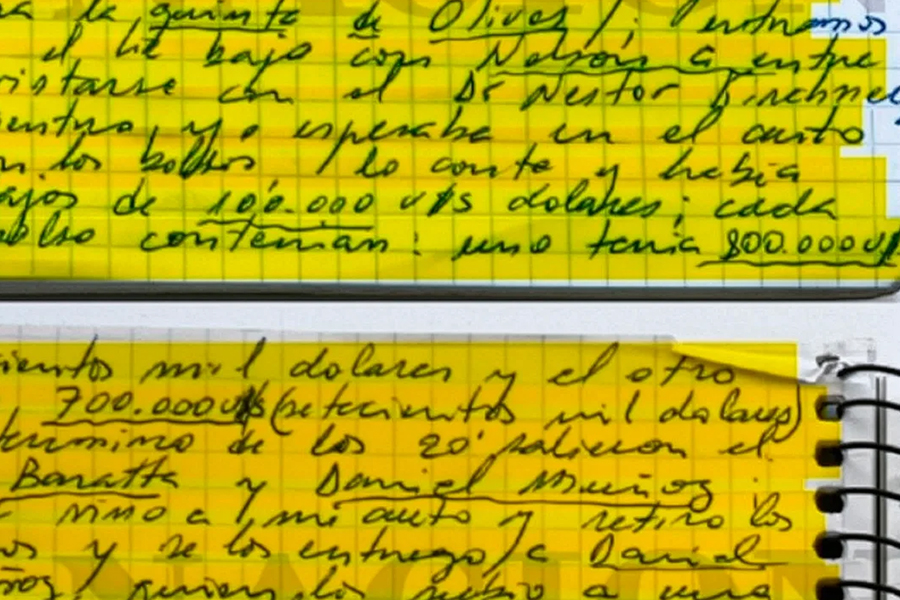 la quinta de Olivos/; entramos
el Lic bajo con Nelson a entre
vistarse con el Dr Nestor Kirchner
dentro, y yo esperaba en el auto
en los bolsos, lo conte y habia
ajos de 100.000 u$s dolares; cada
bolso contenian: uno tenia 800.000 u$
cientos mil dolares y el otro
700.000 u$s (setecientos mil dolares)
termino de los 20' salieron el
Baratta y Daniel Muñoz
vino a mi auto y retiro los
os y se los entrego a Daniel
ñoz, quien los subio a una